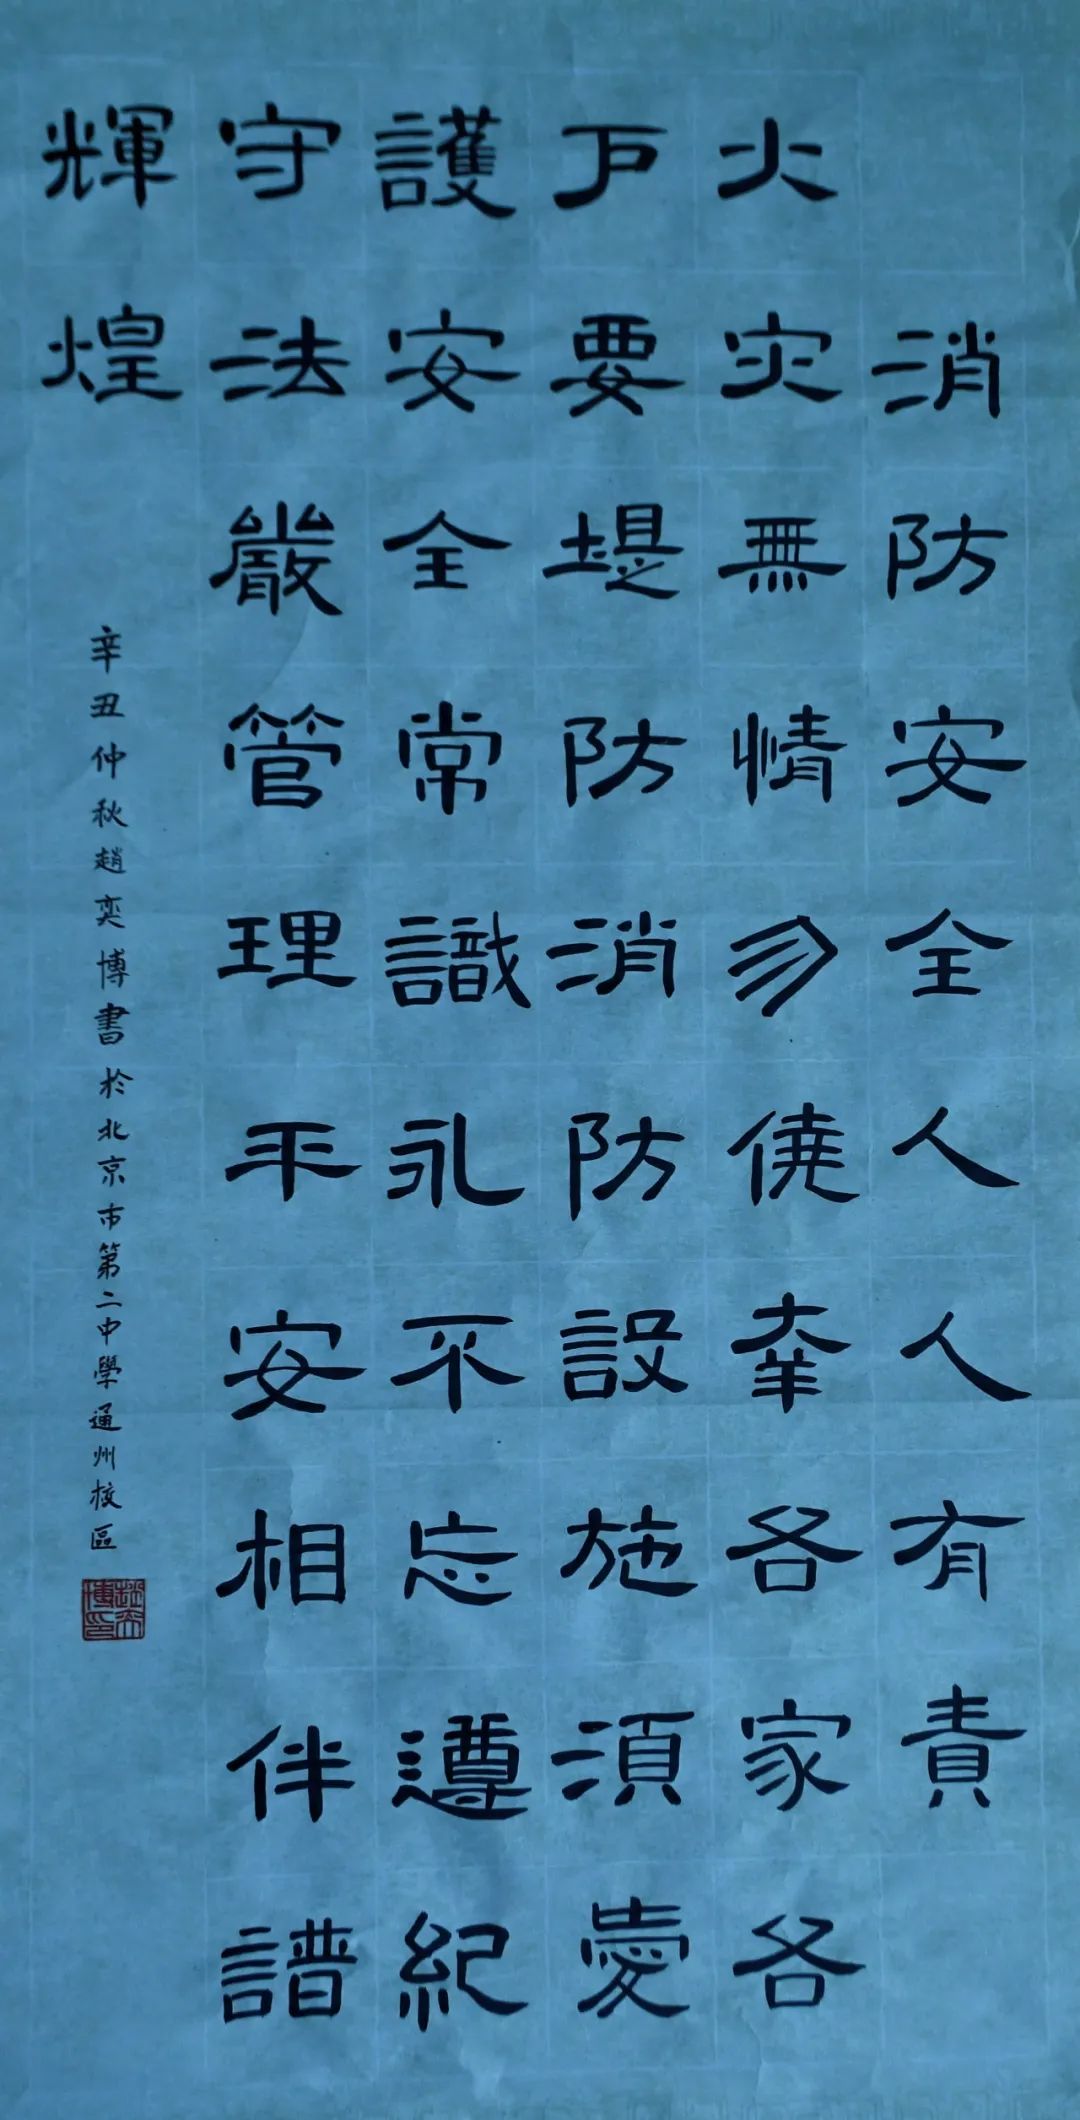 消防安全人人有責
火災無情勿僥幸各家各
戶要堤防消防設施須愛
護安全常識永不忘遵紀
守法嚴管理平安相伴譜
輝煌
辛丑仲秋趙奕博書於北京市第二中學通州校區
趙奕博印